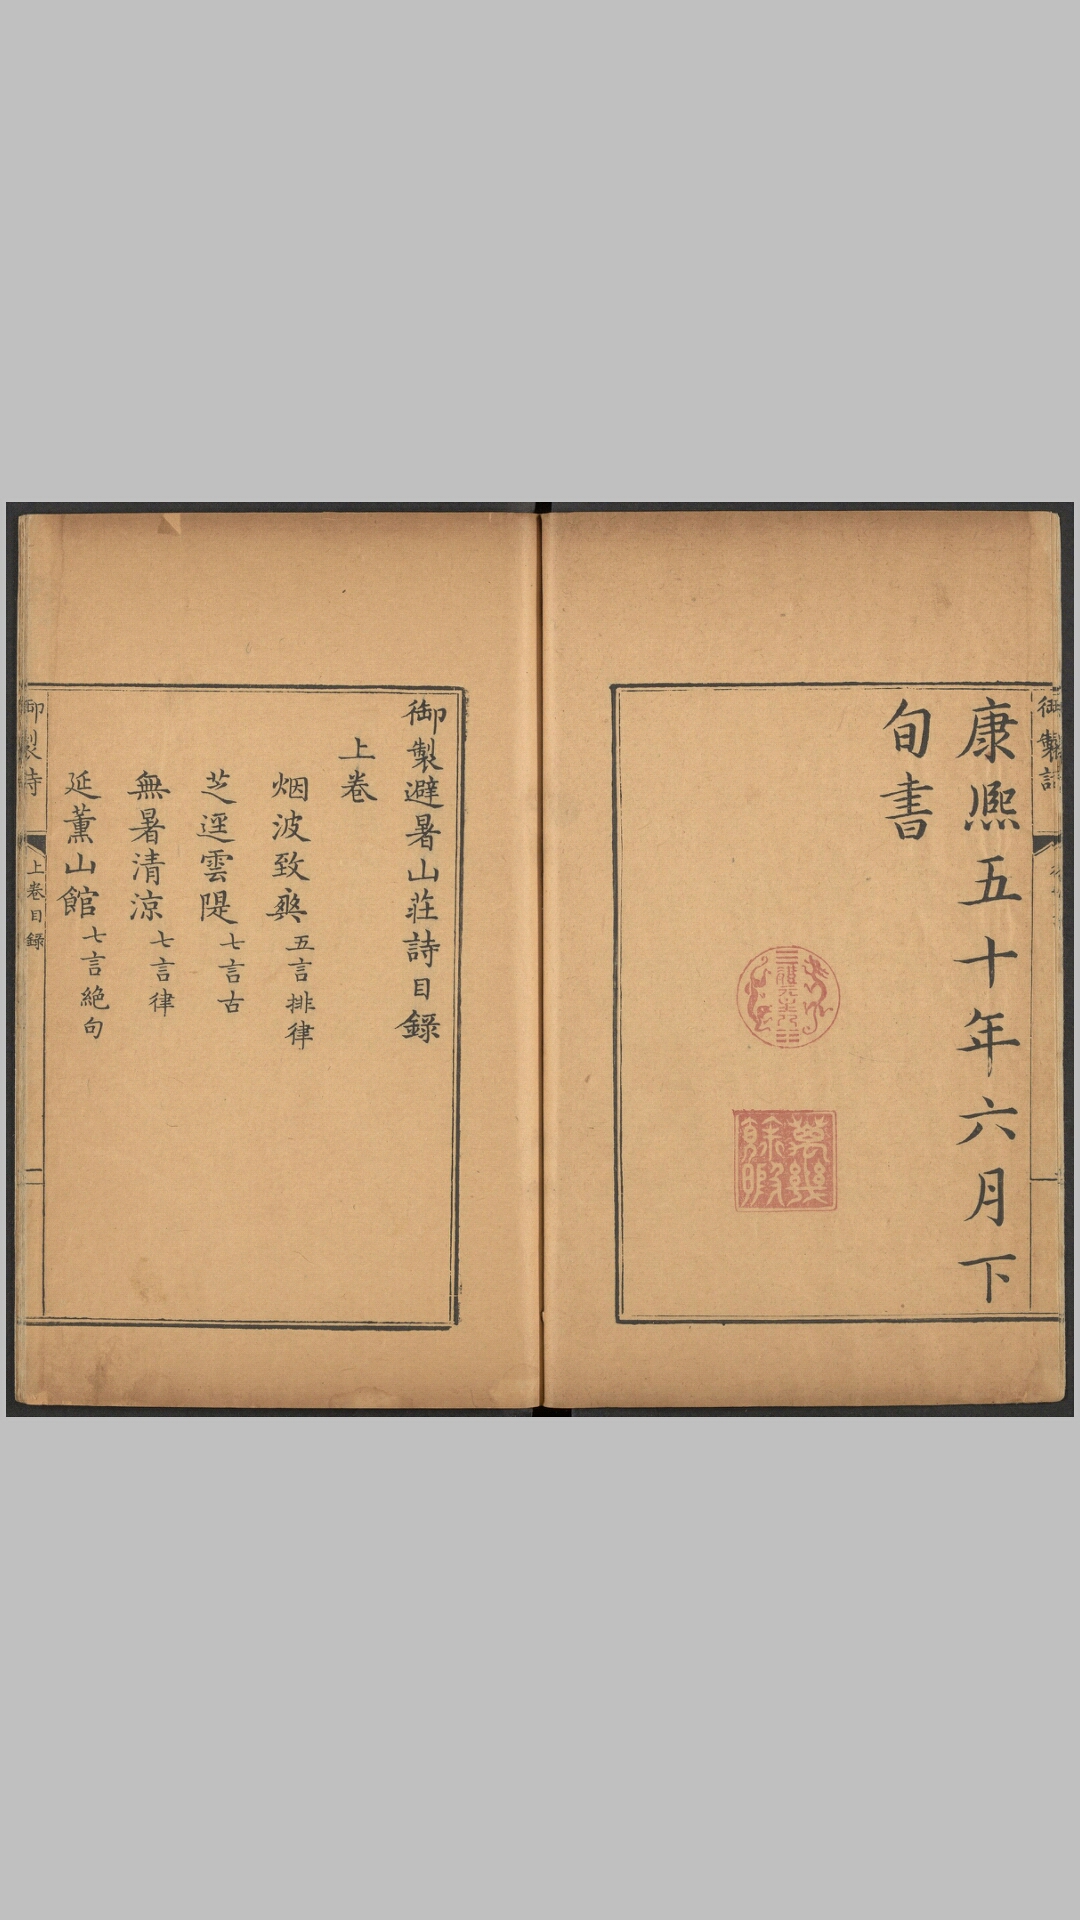 康熈五十年六月下
旬書
萬幾餘暇
御製避暑山莊詩目錄
上卷
烟波致爽 五言排律
芝逕雲隄 七言古
無暑清涼 七言律
延薰山館 七言絕句
御製詩 上卷目錄 一